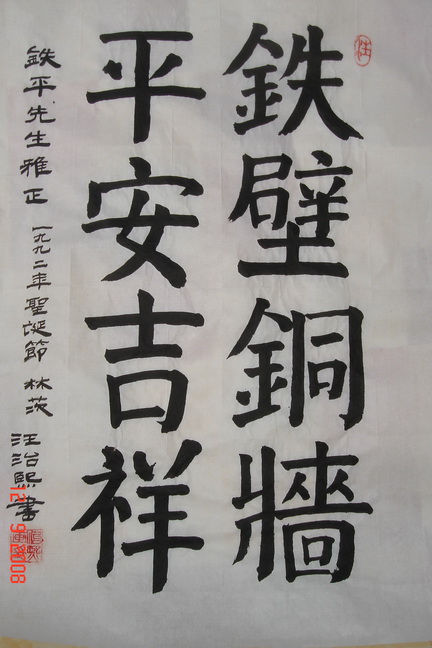 鉄壁銅牆
平安吉祥
鉄平先生雅正 一九九二年聖誕節 林茨 汪治熙書